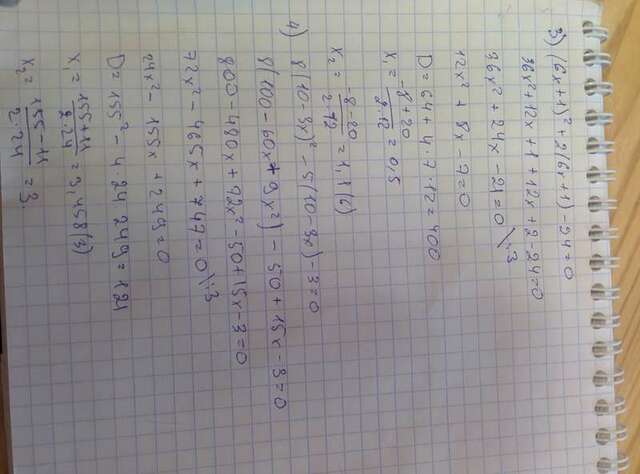 3) (6x+1)²+2(6x+1)-24=0
36x²+12x+1+12x+2-24=0
36x²+24x-21=0 \:3
12x²+8x-7=0
D=64+4·7·12=400
x₁= (-8+20)/(2·12) = 0,5
x₂= (-8-20)/(2·12) = 1,1(6)
4) 8(10-3x)²-5(10-3x)-3=0
8(100-60x+9x²)-50+15x-3=0
800-480x+72x²-50+15x-3=0
72x²-465x+747=0 \:3
24x²-155x+249=0
D=155²-4·24·249=121
x₁= (155+11)/(2·24) = 3,458(3)
x₂= (155-11)/(2·24) = 3.